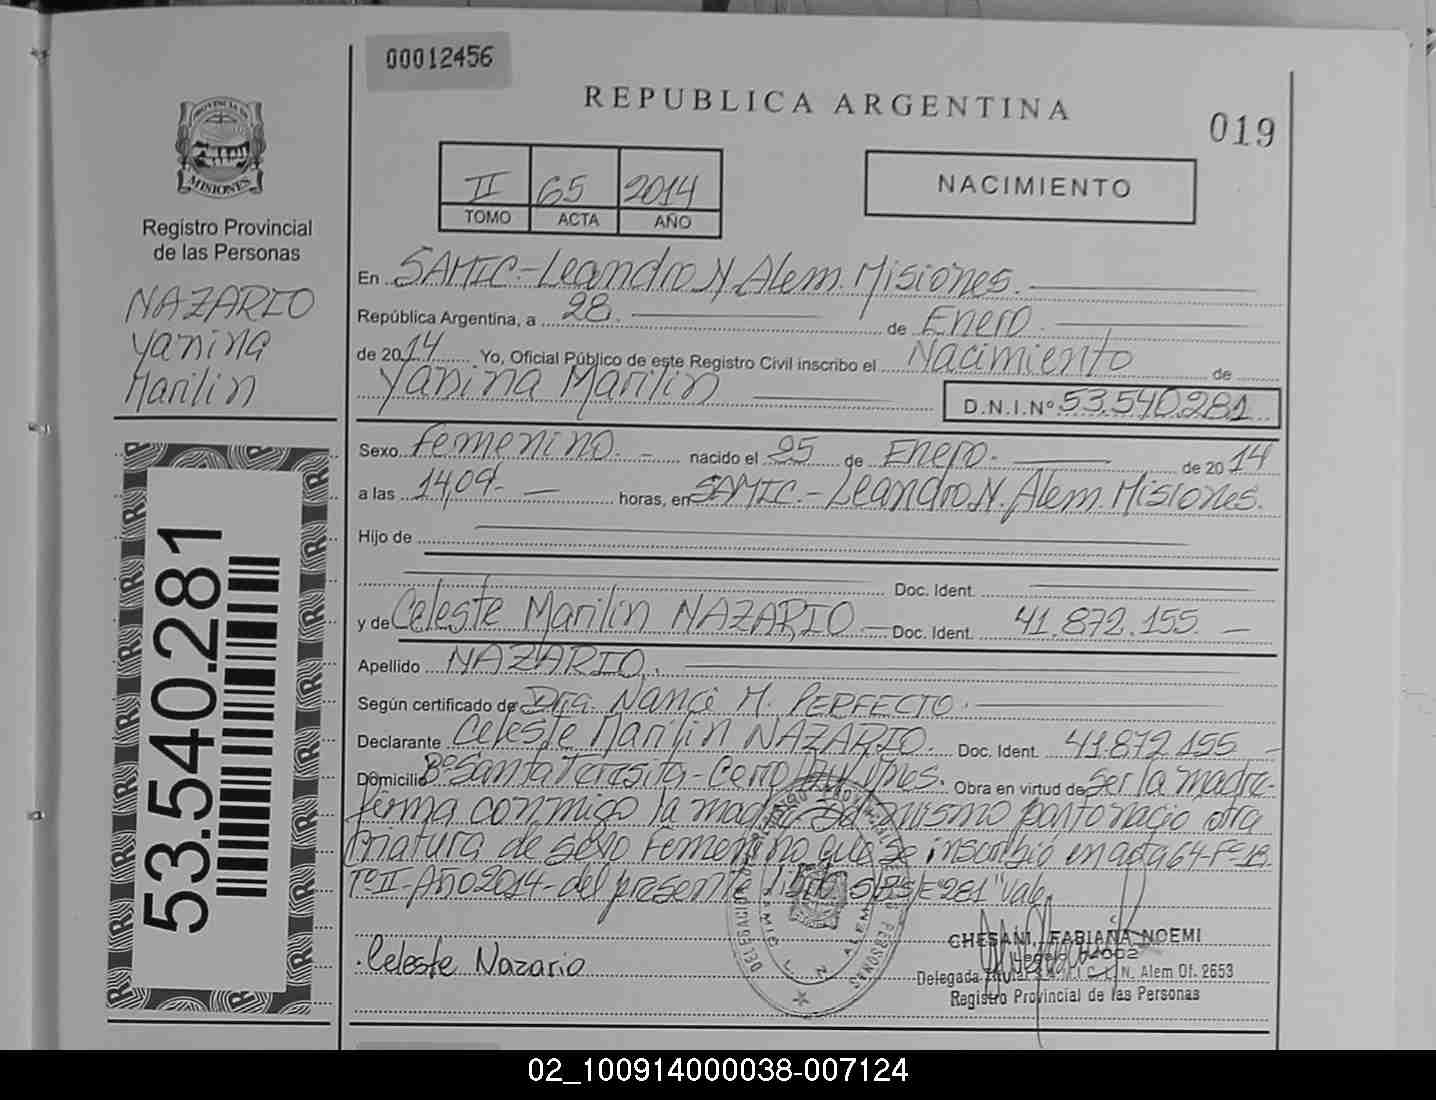 00012456
REPUBLICA ARGENTINA
019
PROVINCIA DE
MISIONES
Registro Provincial
de las Personas
NAZARIO
Yanina
Marilin
II 65 2014
TOMO ACTA AÑO
NACIMIENTO
En SAMIC.- Leandro N. Alem. Misiones.
República Argentina, a 28. de Enero.
de 2014 Yo, Oficial Público de este Registro Civil inscribo el Nacimiento de
Yanina Marilin
D.N.I.Nº 53.540.281
Sexo Femenino. - nacido el 25 de Enero. de 2014
a las 14,09.- horas, en SAMIC.- Leandro N. Alem. Misiones.
Hijo de
Doc. Ident.
y de Celeste Marilin NAZARIO.- Doc. Ident. 41.872.155. -
Apellido NAZARIO.
Según certificado de Dra. Nanci M. PERFECTO.
Declarante Celeste Marilin NAZARIO. Doc. Ident. 41.872.155 -
Domicilio Bº Santa Teresita - Cerro. Obra en virtud de ser la madre-
firma conmigo la madre. Del mismo parto nació otra
criatura de sexo Femenino que se inscribió en acta 64-Fº18.
Tº II-Año 2014-del presente libro S/R/E "281" Vale
Celeste Nazario
CHESANI, FABIANA NOEMI
Delegada Titular N. Alem Of. 2653
Registro Provincial de las Personas
53.540.281
02_100914000038-007124